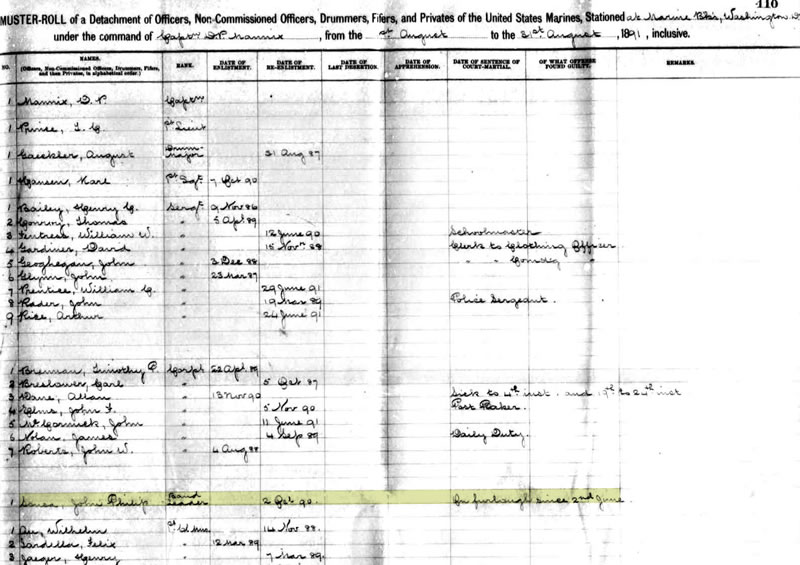 110
MUSTER-ROLL of a Detachment of Officers, Non-Commissioned Officers, Drummers, Fifers, and Privates of the United States Marines, Stationed at Marine Bks, Washington
under the command of Captn D P Mannix, from the 1st August to the 31st August, 1891, inclusive.
NO. NAMES. RANK. DATE OF ENLISTMENT. DATE OF RE-ENLISTMENT. DATE OF LAST DESERTION. DATE OF APPREHENSION. DATE OF SENTENCE OF COURT-MARTIAL. OF WHAT OFFENCE FOUND GUILTY. REMARKS.
(Officers, Non-Commissioned Officers, Drummers, Fifers, and then Privates, in alphabetical order.)
1 Mannix, D. P. Captn
1 Prince, T. C. 1st Lieut
1 August Drum-Major 31 Aug 87
1 Hansen, Karl 1st Sgt. 7 Oct 90
1 Bailey, Henry C. Sergt. 9 Nov 86
2 Thomas " 5 Apl. 89
3 Fentress, William W. " 12 June 90 Schoolmaster
4 Gardiner, David " 15 Novr 88 Clerk to Clothing Officer
5 Geoghegan, John " 3 Dec 88 " " Comdg "
6 Glynn, John " 23 Mar 87
7 Prentice, William C. " 29 June 91
8 Rader, John " 19 Mar 89 Police Sergeant.
9 Rice, Arthur " 24 June 91
1 Brennan, Timothy P. Corpl 22 Apl. 89
2 Breslauer, Carl " 5 Oct 87
3 Dare, Allan " 13 Nov 90 Sick to 4th inst. and 19th to 24th inst
4 Elms, John F. " 5 Nov 90 Post Baker.
5 McCormick, John " 11 June 91
6 Nolan, James " 4 Sep 89 Daily Duty.
7 Roberts, John W. " 4 Aug 88
1 Sousa, John Philip Band Leader 2 Oct 90. On furlough since 2nd June
1 Wilhelm 1st Cl Mus. 14 Nov 88.
2 Jardella, Felix " 12 Mar 89
3 Jaeger, Henry " 7 Mar 89.